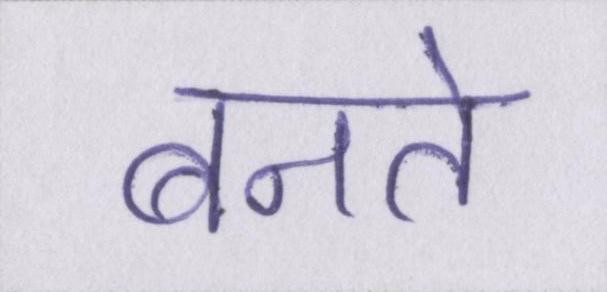 बनते